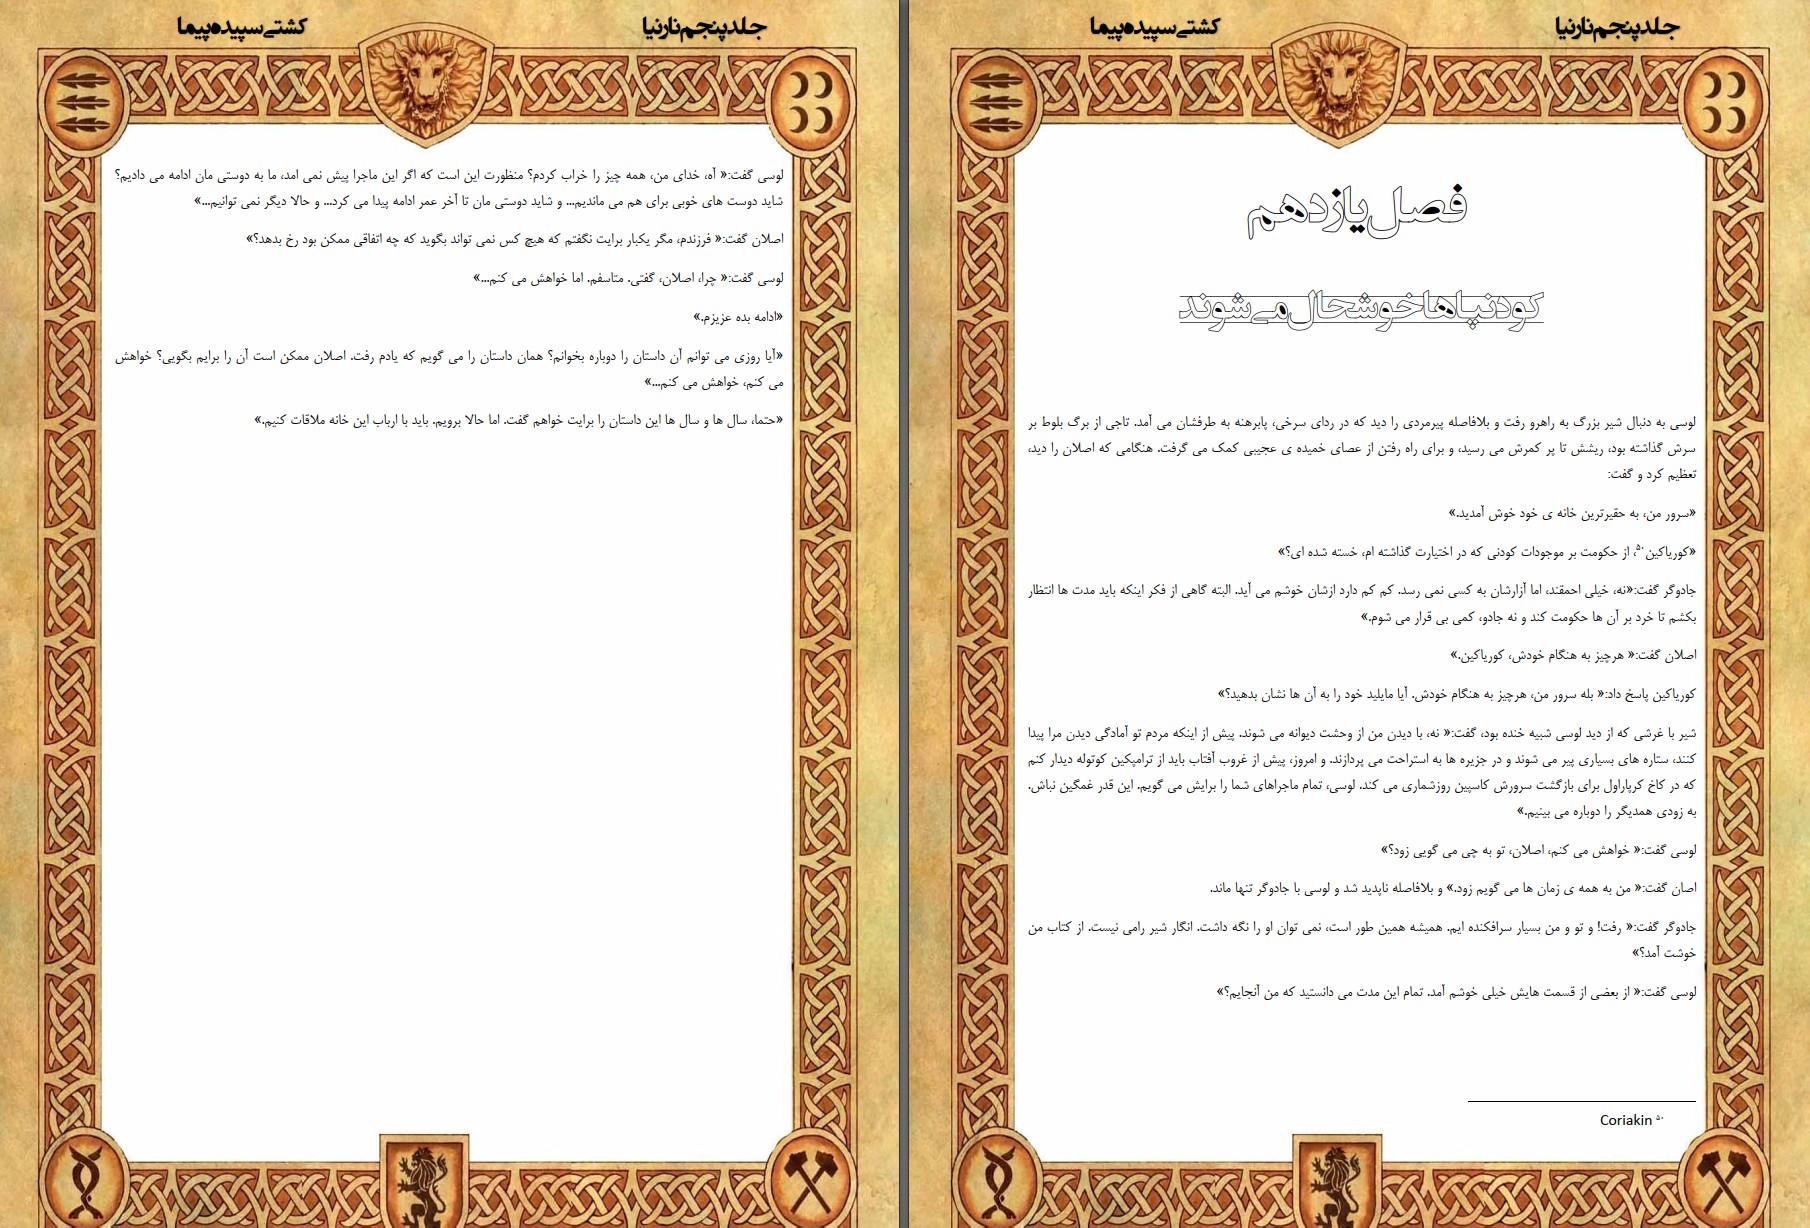 جلد پنجم نارنیا
کشتی سپیده پیما
لوسی گفت:« آه، خدای من، همه چیز را خراب کردم؟ منظورت این است که اگر این ماجرا پیش نمی امد، ما به دوستی مان ادامه می دادیم؟
شاید دوست های خوبی برای هم می ماندیم... و شاید دوستی مان تا آخر عمر ادامه پیدا می کرد... و حالا دیگر نمی توانیم...»
اصلان گفت:« فرزندم، مگر یکبار برایت نگفتم که هیچ کس نمی تواند بگوید که چه اتفاقی ممکن بود رخ بدهد؟»
لوسی گفت:« چرا، اصلان، گفتی. متاسفم. اما خواهش می کنم...»
«ادامه بده عزیزم.»
«آیا روزی می توانم آن داستان را دوباره بخوانم؟ همان داستان را می گویم که یادم رفت. اصلان ممکن است آن را برایم بگویی؟ خواهش
می کنم، خواهش می کنم...»
«حتما، سال ها و سال ها این داستان را برایت خواهم گفت. اما حالا برویم. باید با ارباب این خانه ملاقات کنیم.»
جلد پنجم نارنیا
کشتی سپیده پیما
فصل یازدهم
کودنپاها خوشحال می‌شوند
لوسی به دنبال شیر بزرگ به راهرو رفت و بلافاصله پیرمردی را دید که در ردای سرخی، پابرهنه به طرفشان می آمد. تاجی از برگ بلوط بر
سرش گذاشته بود، ریشش تا پر کمرش می رسید، و برای راه رفتن از عصای خمیده ی عجیبی کمک می گرفت. هنگامی که اصلان را دید،
تعظیم کرد و گفت:
«سرور من، به حقیرترین خانه ی خود خوش آمدید.»
«کوریاکین۵۰، از حکومت بر موجودات کودنی که در اختیارت گذاشته ام، خسته شده ای؟»
جادوگر گفت:«نه، خیلی احمقند، اما آزارشان به کسی نمی رسد. کم کم دارد ازشان خوشم می آید. البته گاهی از فکر اینکه باید مدت ها انتظار
بکشم تا خرد بر آن ها حکومت کند و نه جادو، کمی بی قرار می شوم.»
اصلان گفت:« هرچیز به هنگام خودش، کوریاکین.»
کوریاکین پاسخ داد:« بله سرور من، هرچیز به هنگام خودش. آیا مایلید خود را به آن ها نشان بدهید؟»
شیر با غرشی که از دید لوسی شبیه خنده بود، گفت:« نه، با دیدن من از وحشت دیوانه می شوند. پیش از اینکه مردم تو آمادگی دیدن مرا پیدا
کنند، ستاره های بسیاری پیر می شوند و در جزیره ها به استراحت می پردازند. و امروز، پیش از غروب آفتاب باید از ترامپکین کوتوله دیدار کنم
که در کاخ کرپاراول برای بازگشت سرورش کاسپین روزشماری می کند. لوسی، تمام ماجراهای شما را برایش می گویم. این قدر غمگین نباش.
به زودی همدیگر را دوباره می بینیم.»
لوسی گفت:« خواهش می کنم، اصلان، تو به چی می گویی زود؟»
اصان گفت:« من به همه ی زمان ها می گویم زود.» و بلافاصله ناپدید شد و لوسی با جادوگر تنها ماند.
جادوگر گفت:« رفت! و تو و من بسیار سرافکنده ایم. همیشه همین طور است، نمی توان او را نگه داشت. انگار شیر رامی نیست. از کتاب من
خوشت آمد؟»
لوسی گفت:« از بعضی از قسمت هایش خیلی خوشم آمد. تمام این مدت می دانستید که من آنجایم؟»
۵۰ Coriakin